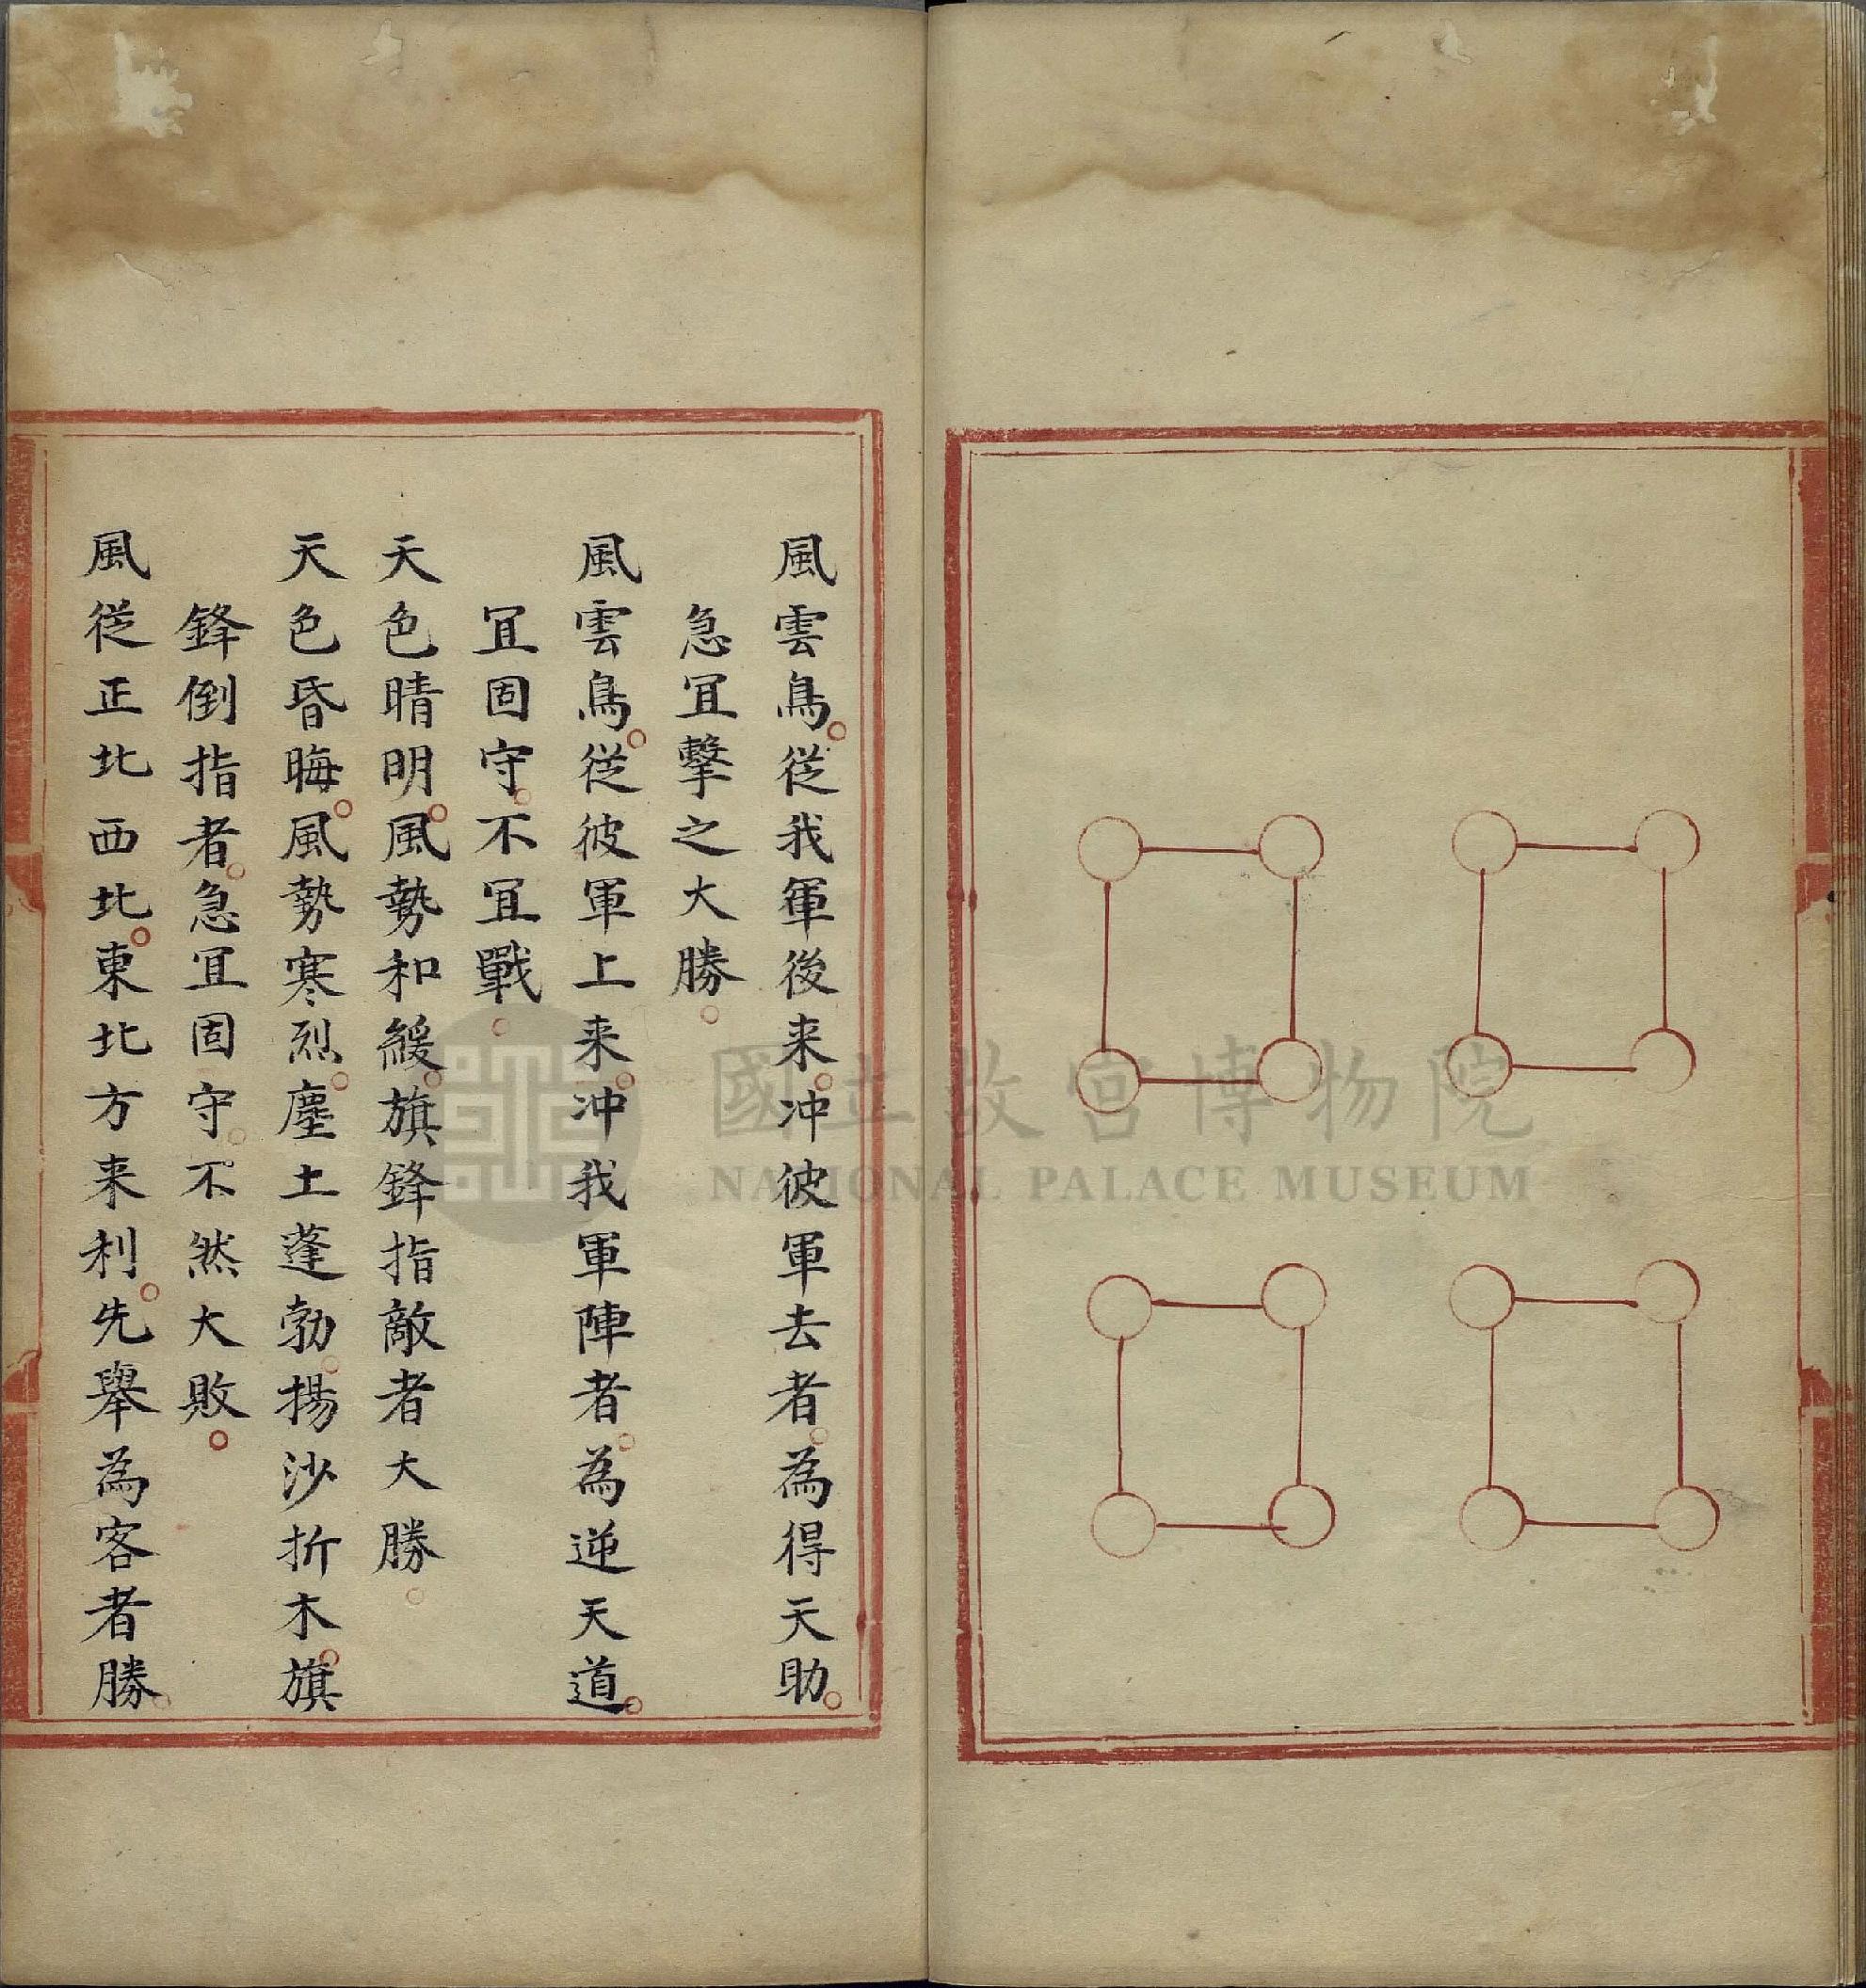 風雲鳥從我軍後来冲彼軍去者為得天助
急冝擊之大勝
風雲鳥從彼軍上来冲我軍陣者為逆天道
冝固守不冝戰
天色晴明風勢和緩旗鋒指敵者大勝
天色昏晦風勢寒烈塵土蓬勃揚沙折木旗
鋒倒指者急冝固守不然大敗
風從正北西北東北方来利先舉為客者勝
國立故宮博物院
NATIONAL PALACE MUSEUM